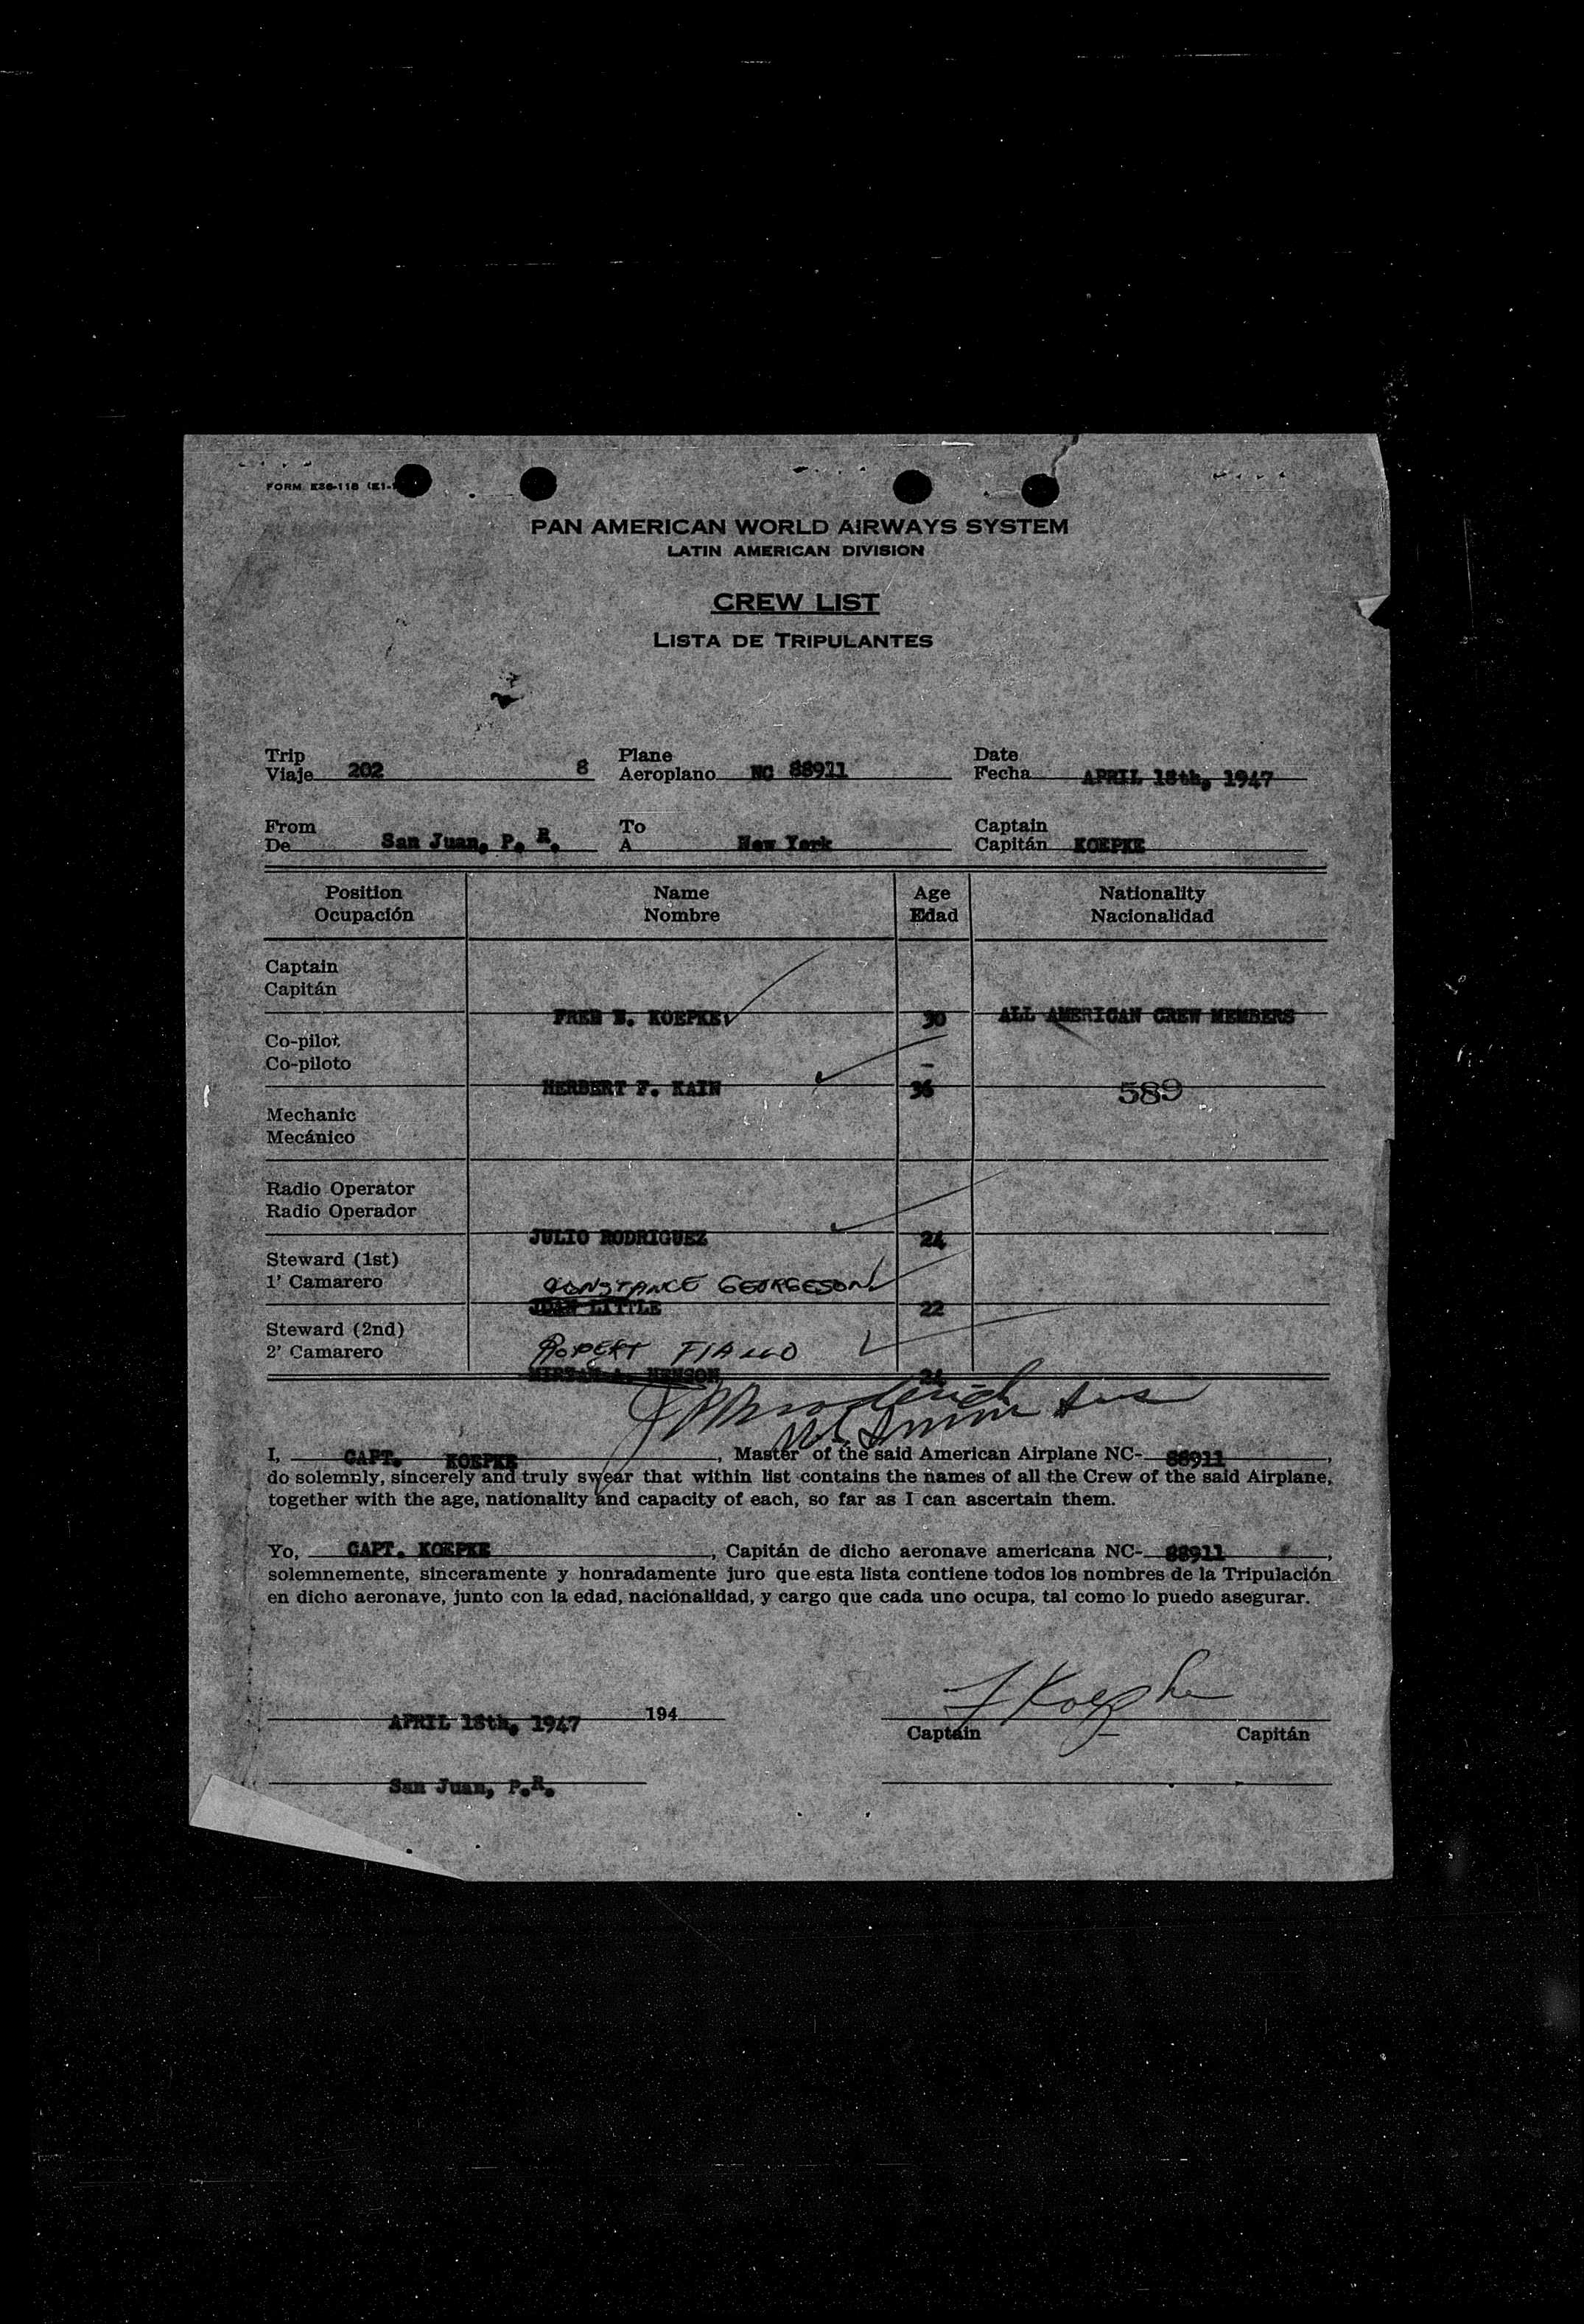 FORM E36-118 (E1-
PAN AMERICAN WORLD AIRWAYS SYSTEM
LATIN AMERICAN DIVISION
CREW LIST
LISTA DE TRIPULANTES
Trip Plane Date
Viaje 202 8 Aeroplano NC 88911 Fecha APRIL 18th, 1947
From To Captain
De San Juan, P. R. A New York Capitán KOEPKE
Position Name Age Nationality
Ocupación Nombre Edad Nacionalidad
Captain
Capitán
FRED E. KOEPKE 30 ALL AMERICAN CREW MEMBERS
Co-pilot
Co-piloto
HERBERT F. KAIN 36 589
Mechanic
Mecánico
Radio Operator
Radio Operador
JULIO RODRIGUEZ 24
Steward (1st)
1' Camarero CONSTANCE GEORGESON
JOAN LITTLE 22
Steward (2nd)
2' Camarero ROPERT FIALLO
MIRIAM A. HENSON 24
I, CAPT. KOEPKE, Master of the said American Airplane NC- 88911,
do solemnly, sincerely and truly swear that within list contains the names of all the Crew of the said Airplane,
together with the age, nationality and capacity of each, so far as I can ascertain them.
Yo, CAPT. KOEPKE, Capitán de dicho aeronave americana NC- 88911,
solemnemente, sinceramente y honradamente juro que esta lista contiene todos los nombres de la Tripulación
en dicho aeronave, junto con la edad, nacionalidad, y cargo que cada uno ocupa, tal como lo puedo asegurar.
F Koepke
APRIL 18th, 1947 194
Captain Capitán
San Juan, P.R.